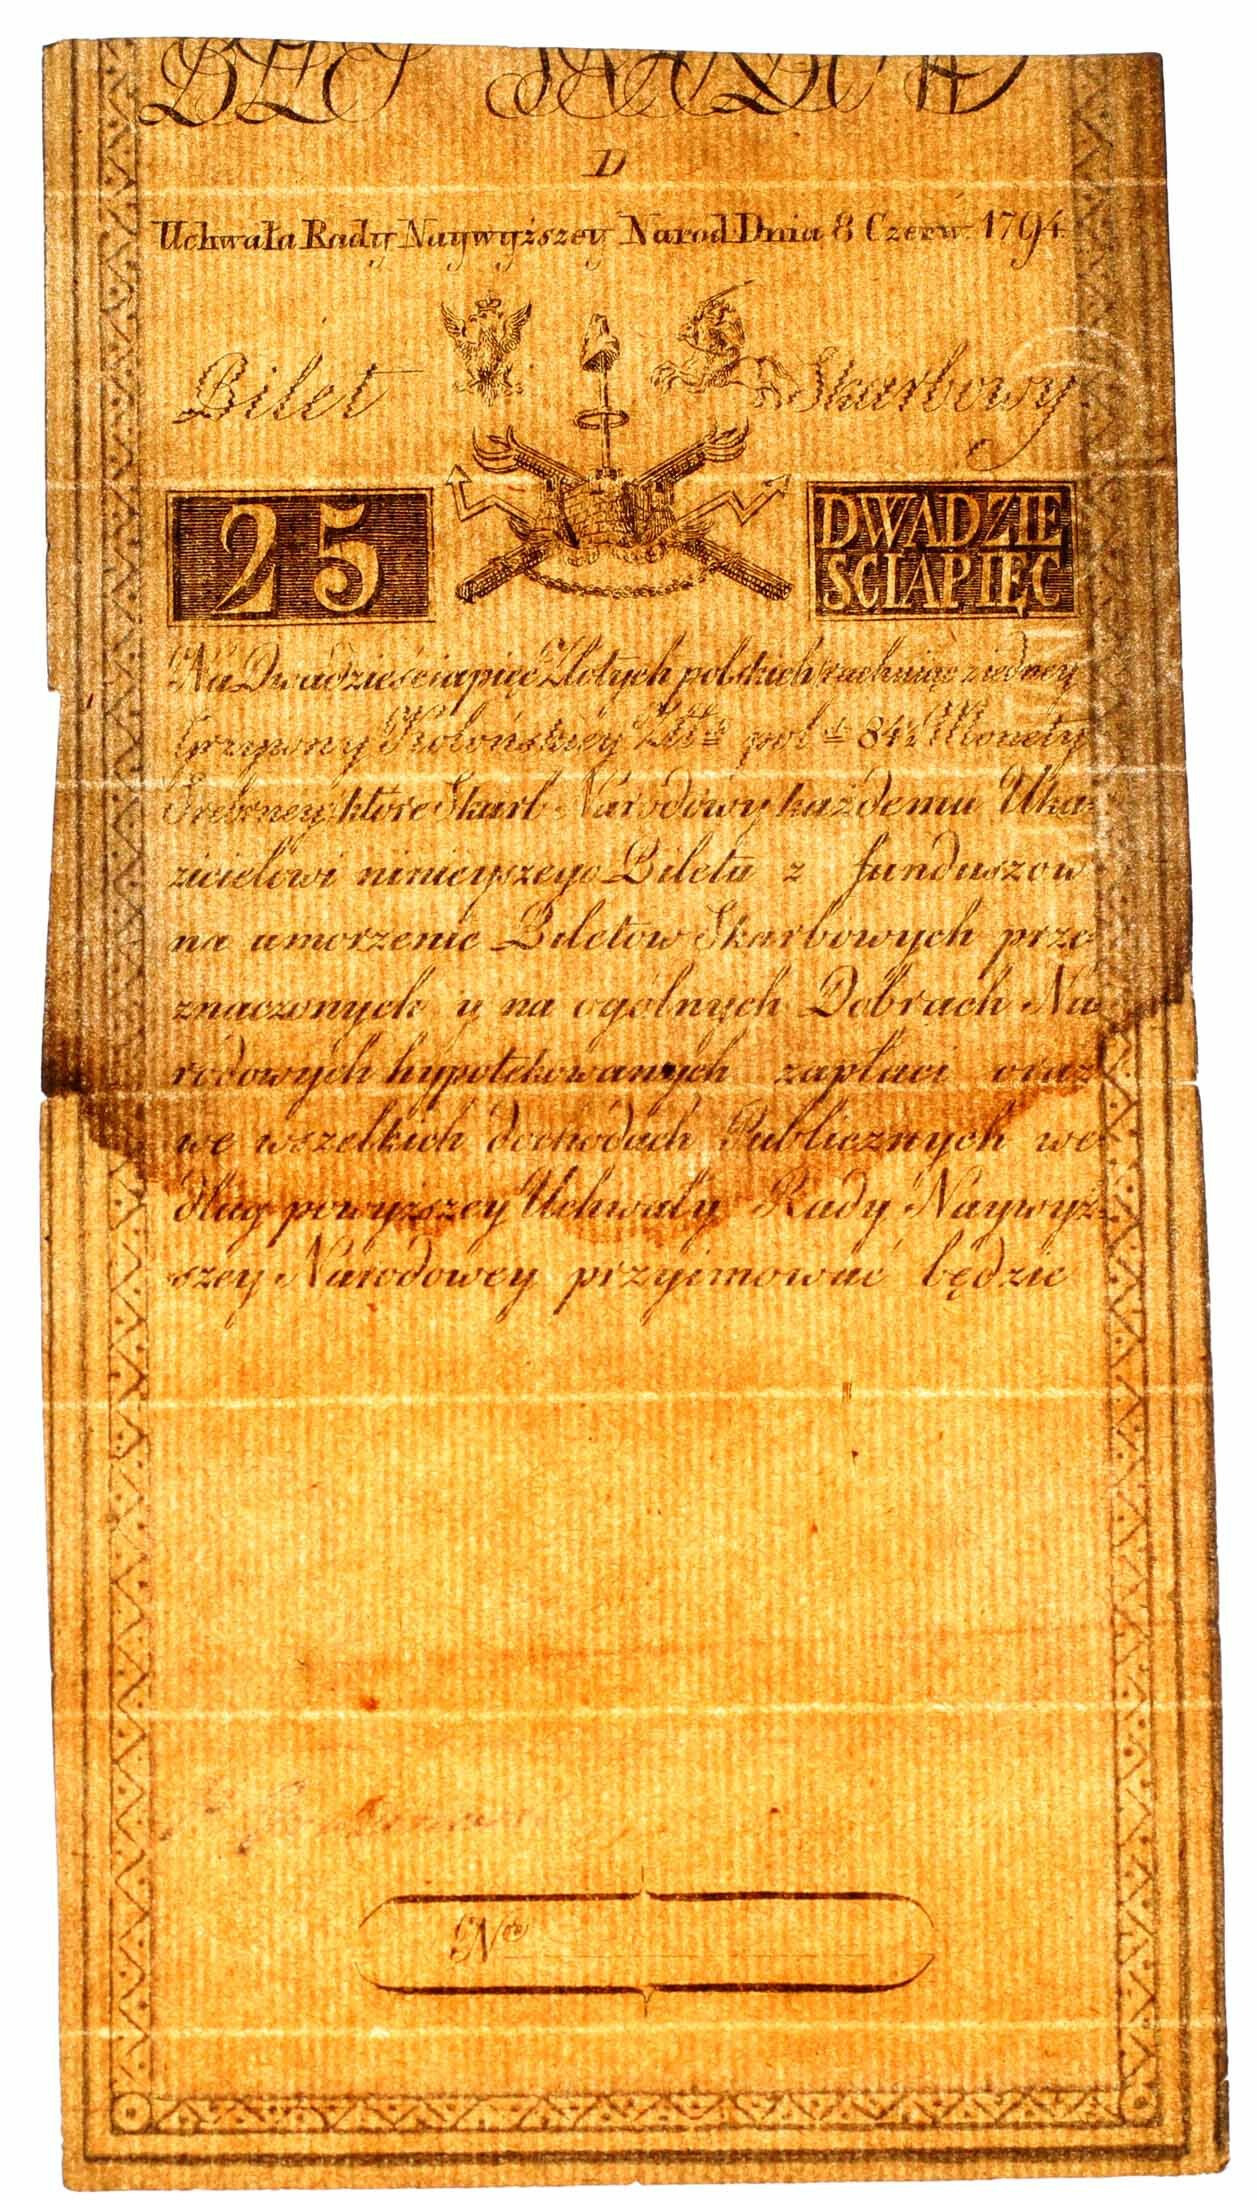 BIL SKARBOW
D
Uchwała Rady Naywyższey Narod Dnia 8 Czerw: 1794
Bilet Skarbowy
25 DWADZIE
SCIAPIĘC
Na Dwadzieściapięć Złotych polskich rachuiąc z iedney
Grzywny Kolońskiey Złtt pol 84½ Monety
Srebrney które Skarb Narodowy każdemu Uka:
zicielowi ninieyszego Biletu z funduszow
na umorzenie Biletow Skarbowych prze
znaczonych y na ogólnych Dobrach Na
rodowych hypotekowanych zapłaci oraz
we wszelkich dochodach Publicznych we
dług powyższey Uchwały Rady Naywyż:
szey Narodowey przyimować będzie
Nro